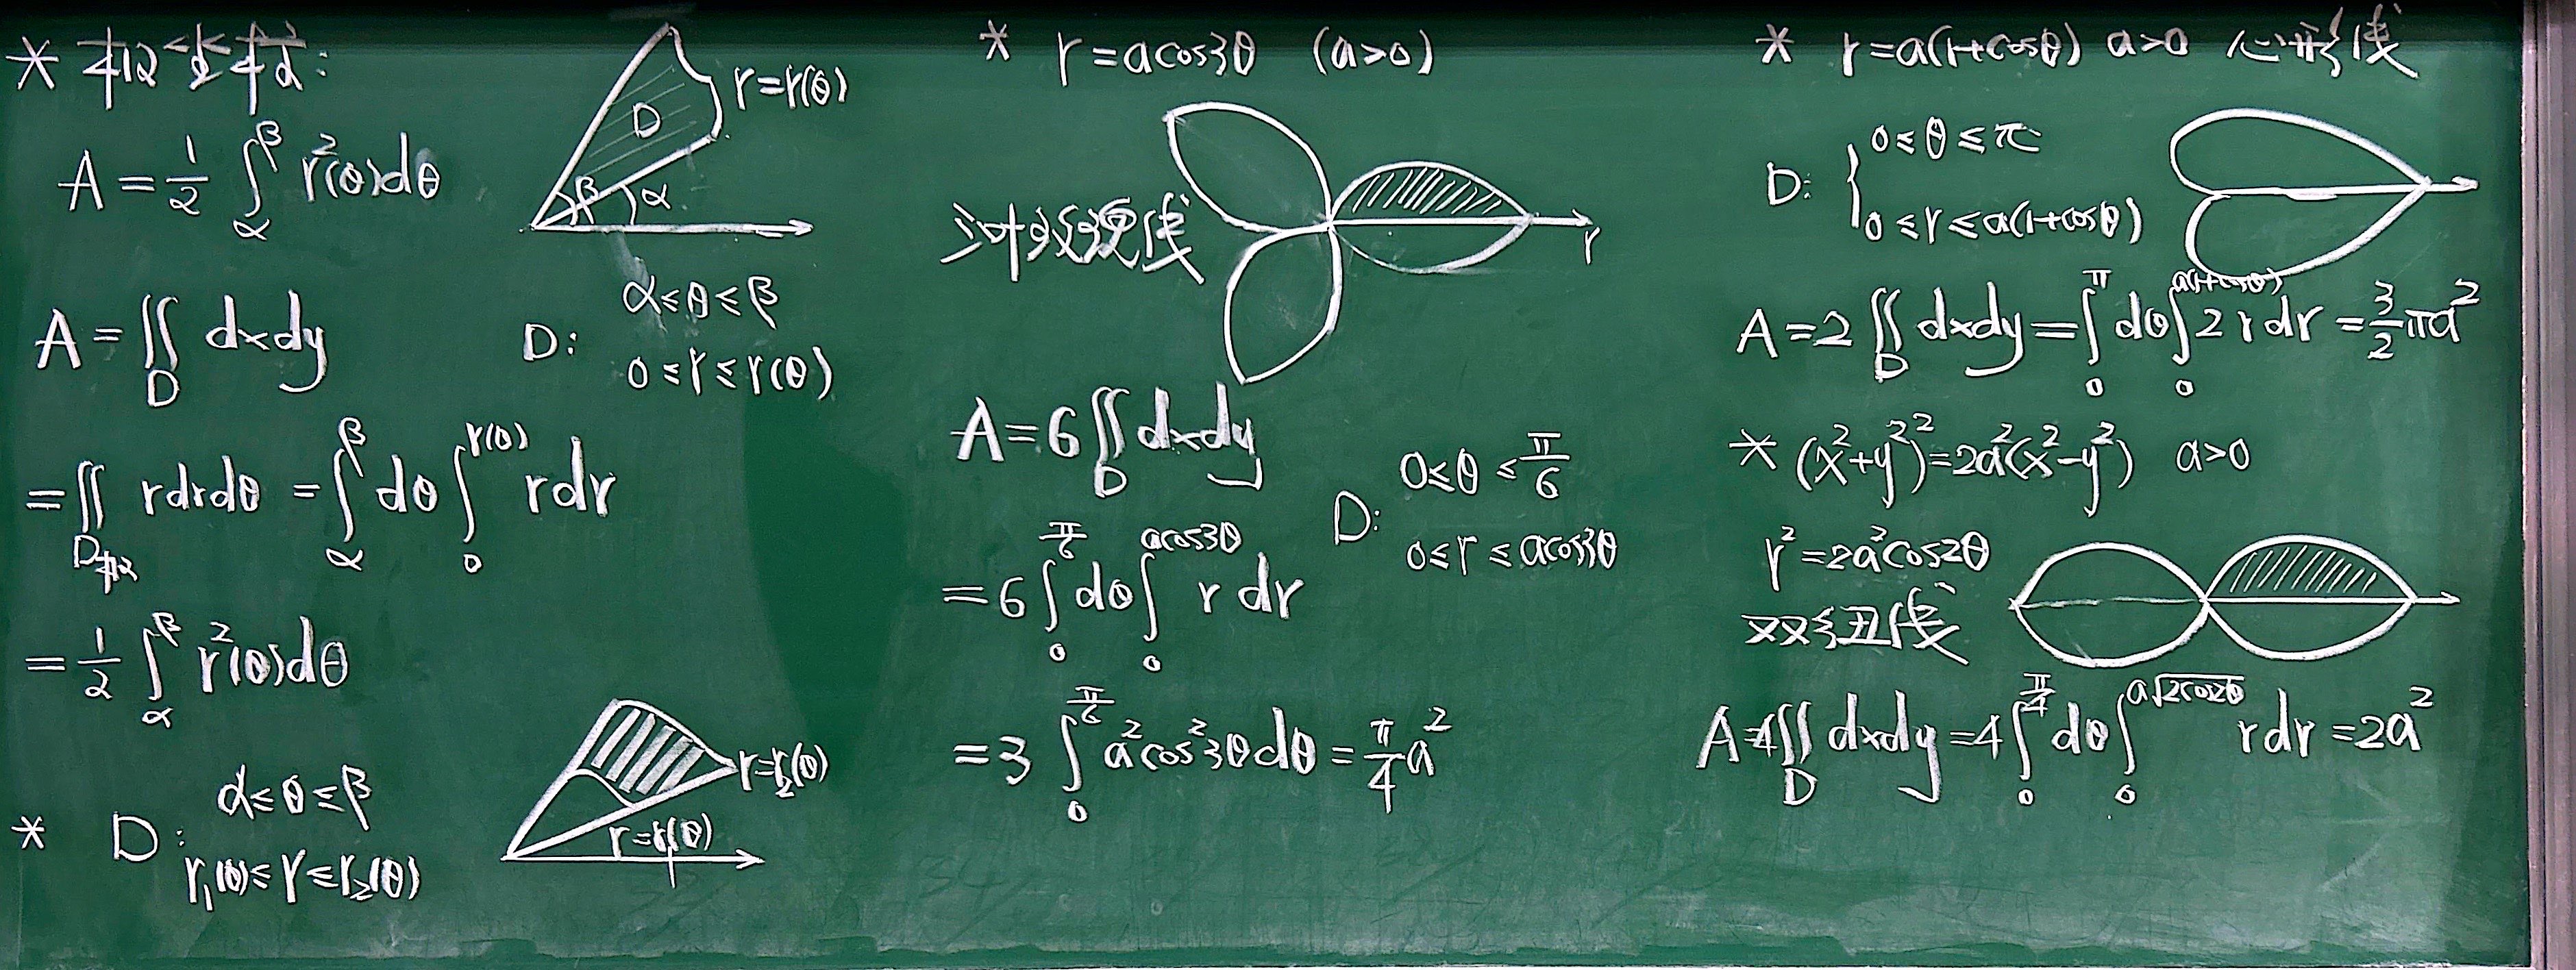 * 极坐标:
A = 1/2 ∫_α^β r²(θ)dθ
D
r=r(θ)
β
α
A = ∬_D dxdy
D: α≤θ≤β
0≤r≤r(θ)
= ∬_{D极} rdrdθ = ∫_α^β dθ ∫_0^{r(θ)} rdr
= 1/2 ∫_α^β r²(θ)dθ
* D: α≤θ≤β
r₁(θ)≤r≤r₂(θ)
r=r₂(θ)
r=r₁(θ)
* r=acos3θ (a>0)
三叶玫瑰线
r
A=6∬_D dxdy
D: 0≤θ≤π/6
0≤r≤acos3θ
=6∫_0^{π/6} dθ ∫_0^{acos3θ} r dr
=3 ∫_0^{π/6} a²cos²3θdθ = π/4 a²
* r=a(1+cosθ) a>0 心形线
D: { 0≤θ≤π
0≤r≤a(1+cosθ)
A=2∬_D dxdy=∫_0^π dθ∫_0^{a(1+cosθ)} 2 r dr = 3/2 πa²
* (x²+y²)²=2a²(x²-y²) a>0
r²=2a²cos2θ
双纽线
A=4∬_D dxdy=4∫_0^{π/4} dθ∫_0^{a√2cos2θ} rdr =2a²